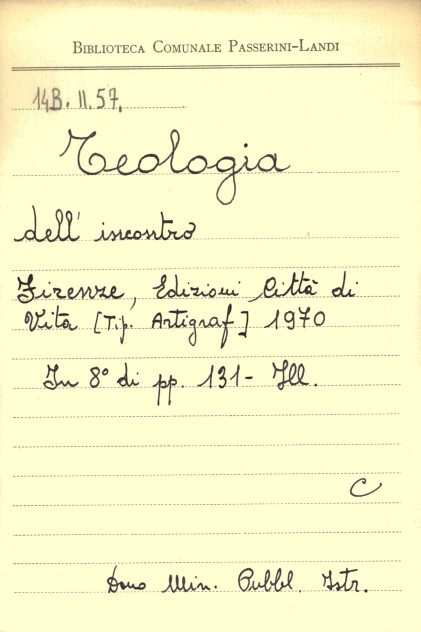 BIBLIOTECA COMUNALE PASSERINI-LANDI
14B. II. 57.
Teologia
dell' incontro
Firenze, Edizioni Città di
Vita [Tip. Artigraf] 1970
In 8° di pp. 131- Ill.
C
Dono Min. Pubbl. Istr.